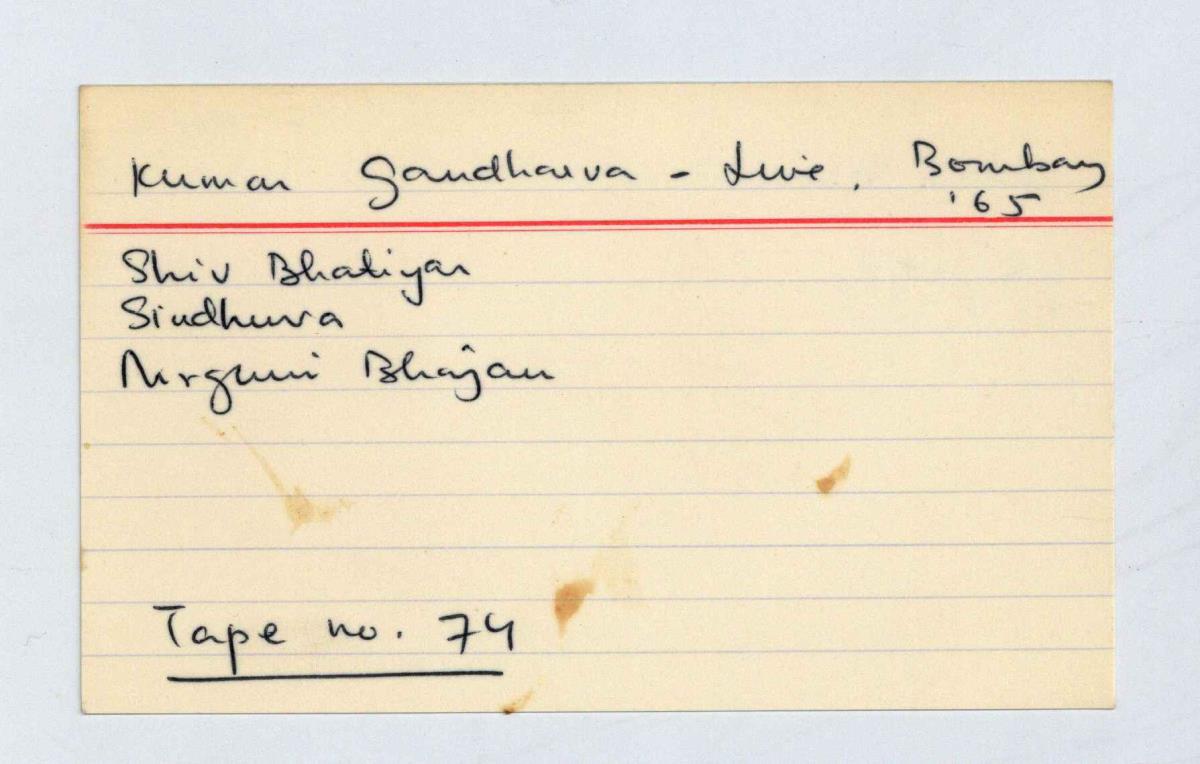 Kumar Gandharva - Live, Bombay
'65
Shiv Bhatiyar
Sindhura
Nirguni Bhajan
Tape no. 74